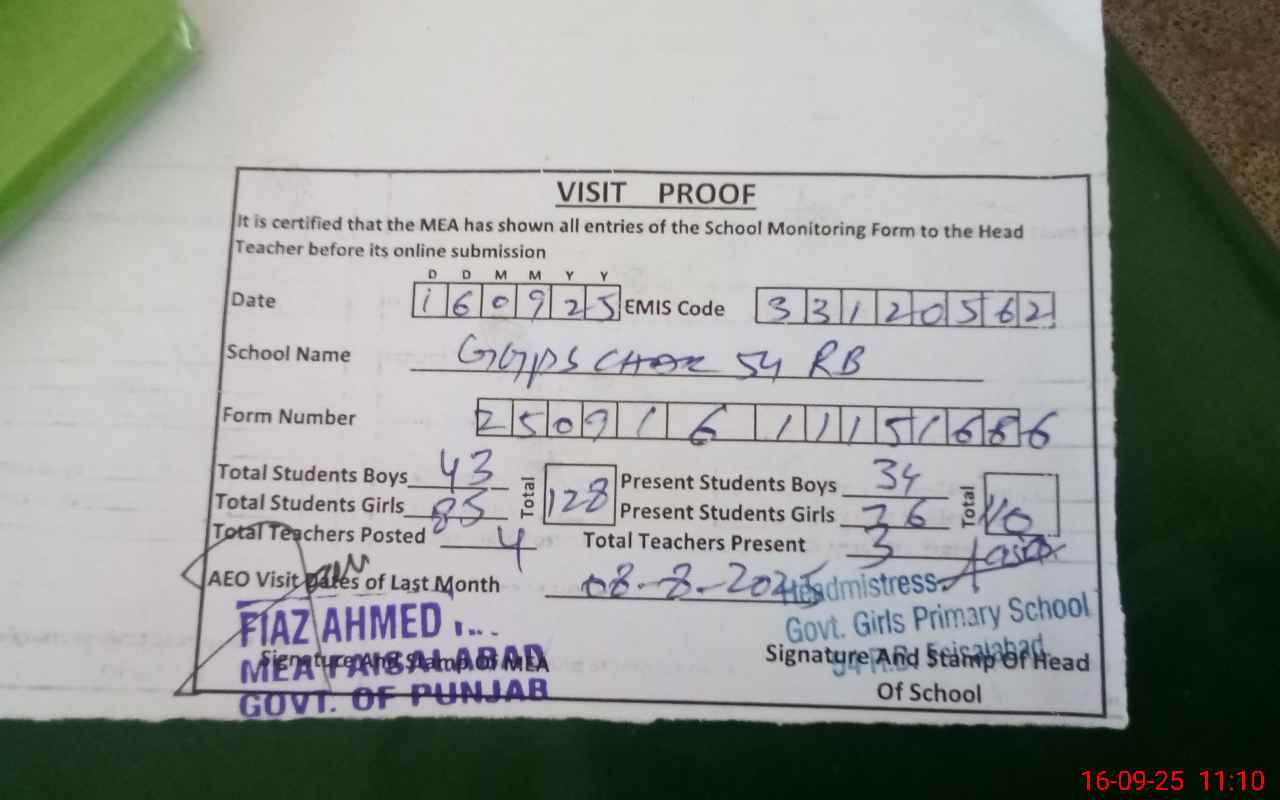 VISIT PROOF
It is certified that the MEA has shown all entries of the School Monitoring Form to the Head
Teacher before its online submission
D D M M Y Y
Date 160925 EMIS Code 33120562
School Name GGPS CHAK 54 RB
Form Number 25091611151686
Total Students Boys 43 Total 128 Present Students Boys 34 Total 110
Total Students Girls 85 Present Students Girls 76
Total Teachers Posted 4 Total Teachers Present 3
AEO Visit Dates of Last Month 08-8-2025
Headmistress
FIAZ AHMED Govt. Girls Primary School
MEA FAISALABAD Faisalabad
Signature And Stamp Of MEA Signature And Stamp Of Head
GOVT. OF PUNJAB Of School
16-09-25 11:10